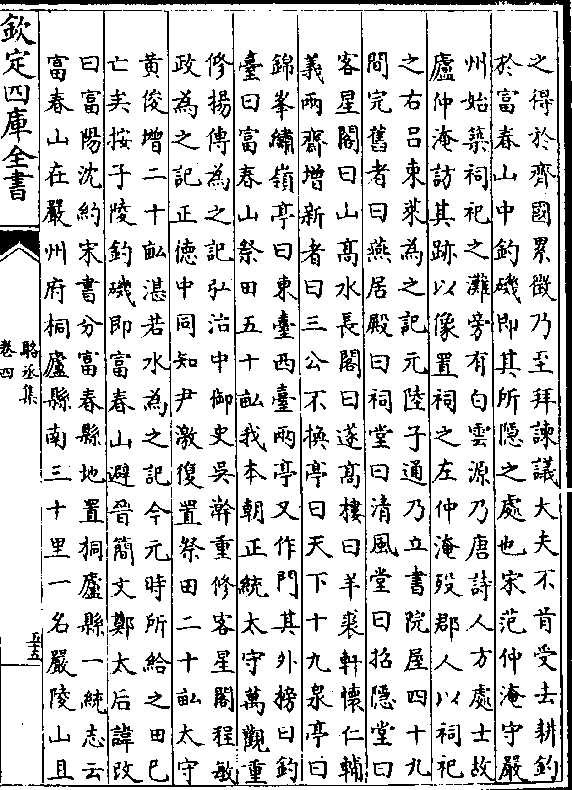 之得於齊國累徴乃至拜諫議大夫不肯受去耕釣
於富春山中釣磯即其所隠之處也宋范仲淹守嚴
州始築祠祀之灘旁有白雲源乃唐詩人方處士故
廬仲淹訪其跡以像置祠之左仲淹殁郡人以祠祀
之右吕東萊為之記元陸子通乃立書院屋四十九
間完舊者曰燕居殿曰祠堂曰清風堂曰招隠堂曰
客星閣曰山髙水長閣曰遂髙樓曰羊裘軒懷仁輔
義兩齋増新者曰三公不換亭曰天下十九泉亭曰
錦峯繡嶺亭曰東臺西臺兩亭又作門其外榜曰釣
臺曰富春山祭田五十畆我本朝正統太守萬觀重
修楊傅為之記弘治中御史吳澣重修客星閣程敏
政為之記正徳中同知尹激復置祭田二十畆太守
黄俊増二十畆湛若水為之記今元時所給之田已
亡矣按子陵釣磯即富春山避晉簡文鄭太后諱改
曰富陽沈約宋書分富春縣地置桐廬縣一統志云
富春山在嚴州府桐廬縣南三十里一名嚴陵山且
欽定四庫全書
駱丞集
卷四
五十五